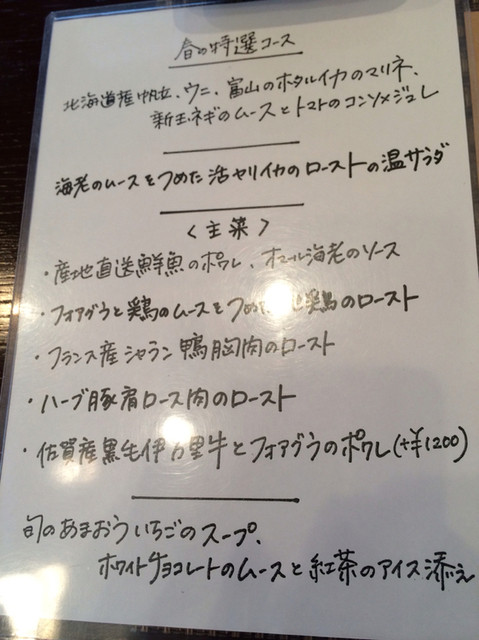 春の特選コース
北海道産帆立、ウニ、富山のホタルイカのマリネ、
新玉ネギのムースとトマトのコンソメジュレ
海老のムースをつめた活ヤリイカのローストの温サラダ
〈主菜〉
・産地直送鮮魚のポワレ、オマール海老のソース
・フォアグラと鶏のムースをつめた 鶏のロースト
・フランス産シャラン鴨胸肉のロースト
・ハーブ豚肩ロース肉のロースト
・佐賀産黒毛伊万里牛とフォアグラのポワレ(+¥1200)
旬のあまおういちごのスープ、
ホワイトチョコレートのムースと紅茶のアイス添え